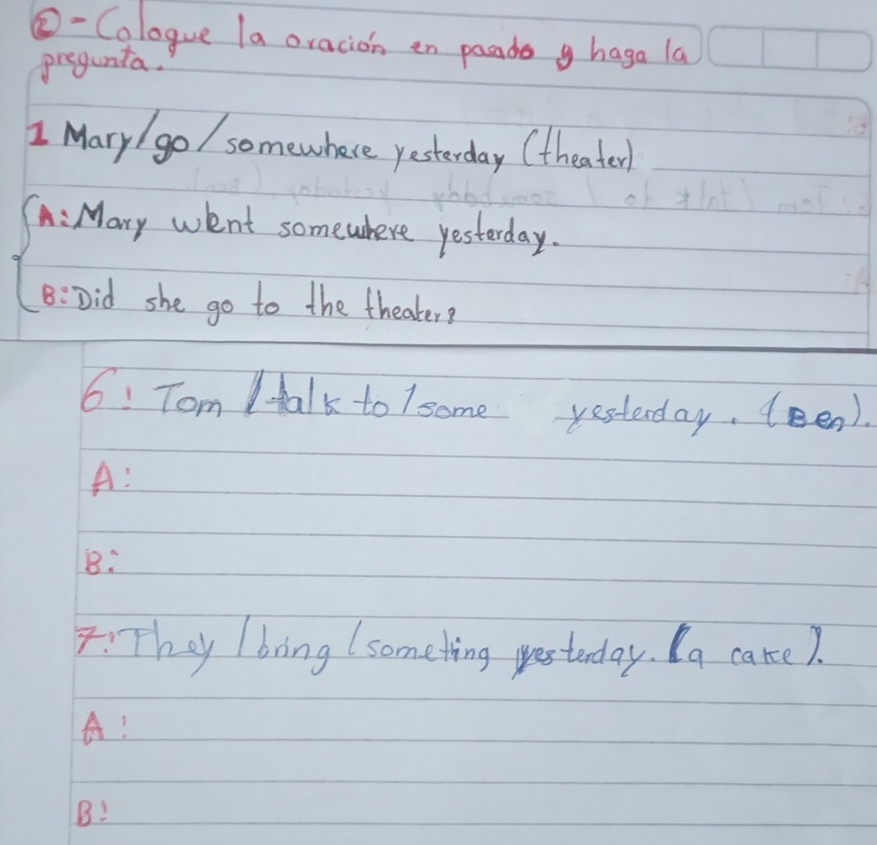 ②-Cologue la oración en pasado y haga la
pregunta.
1 Mary/go/somewhere yesterday (theater)
A: Mary went somewhere yesterday.
B: Did she go to the theater?
6: Tom / talk to / some yesterday. (Ben).
A:
B:
7: They / bring (someting yesterday. (a cake).
A:
B: